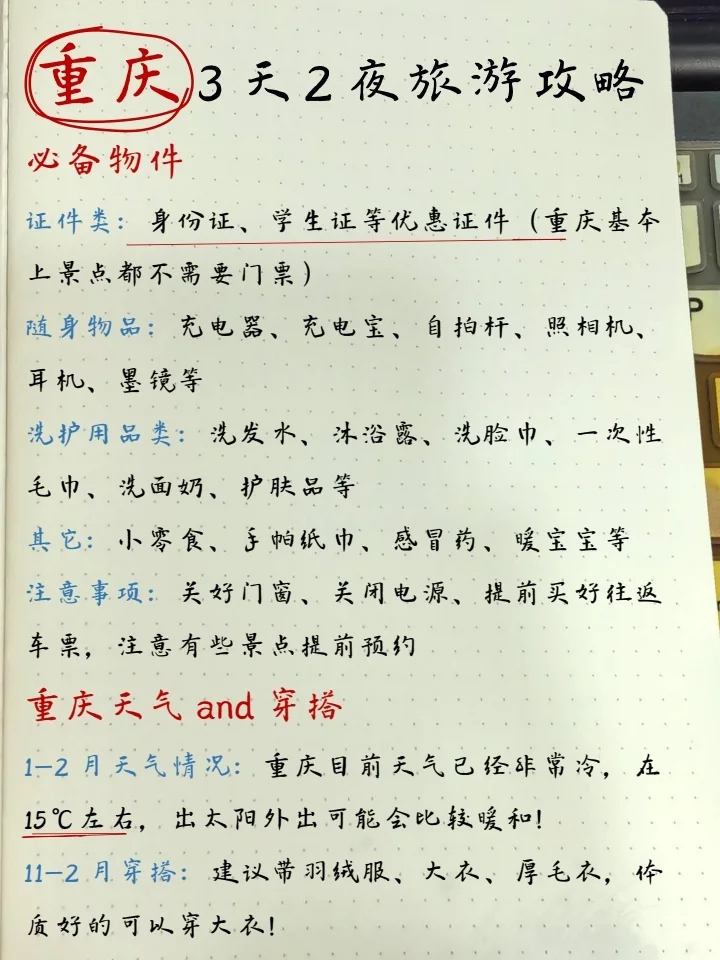 重庆3天2夜旅游攻略
必备物件
证件类：身份证、学生证等优惠证件（重庆基本
上景点都不需要门票）
随身物品：充电器、充电宝、自拍杆、照相机、
耳机、墨镜等
洗护用品类：洗发水、沐浴露、洗脸巾、一次性
毛巾、洗面奶、护肤品等
其它：小零食、手帕纸巾、感冒药、暖宝宝等
注意事项：关好门窗、关闭电源、提前买好往返
车票，注意有些景点提前预约
重庆天气and穿搭
1-2月天气情况：重庆目前天气已经非常冷，在
15℃左右，出太阳外出可能会比较暖和！
11-2月穿搭：建议带羽绒服、大衣、厚毛衣，体
质好的可以穿大衣！